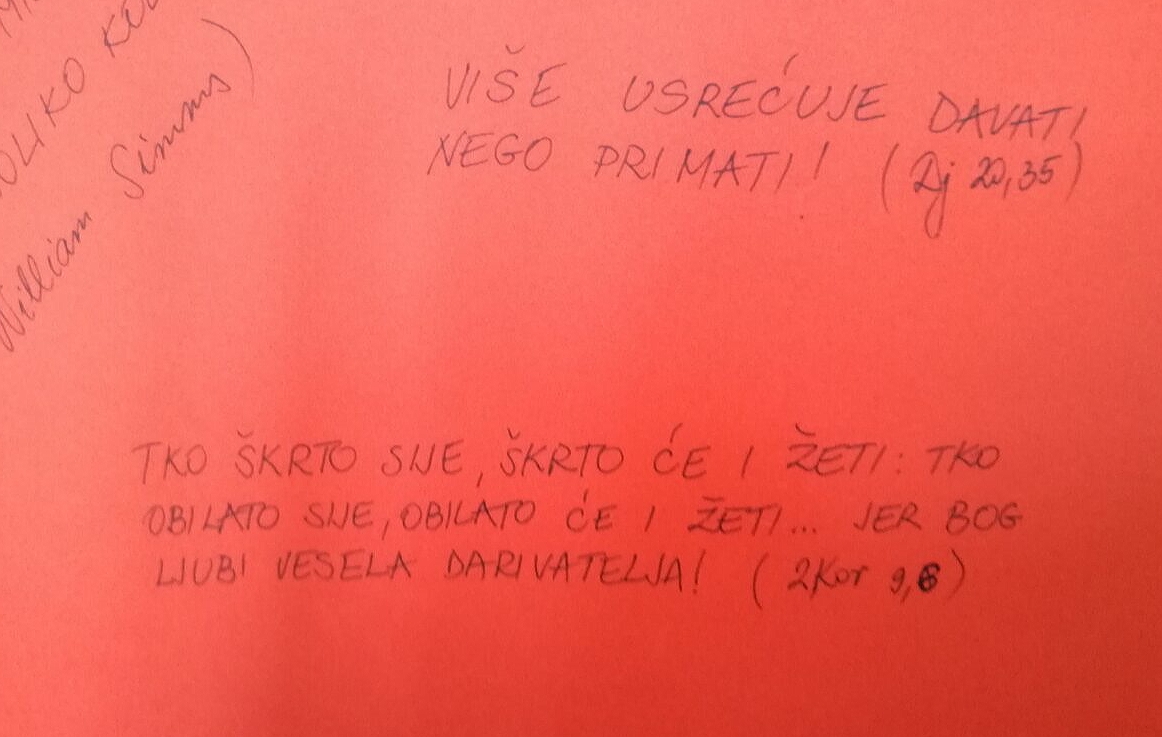 VIŠE USREĆUJE DAVATI
NEGO PRIMATI! (Dj 20,35)
TKO ŠKRTO SIJE, ŠKRTO ĆE I ŽETI: TKO
OBILATO SIJE, OBILATO ĆE I ŽETI... JER BOG
LJUBI VESELA DARIVATELJA! (2Kor 9,6)
William Simms)